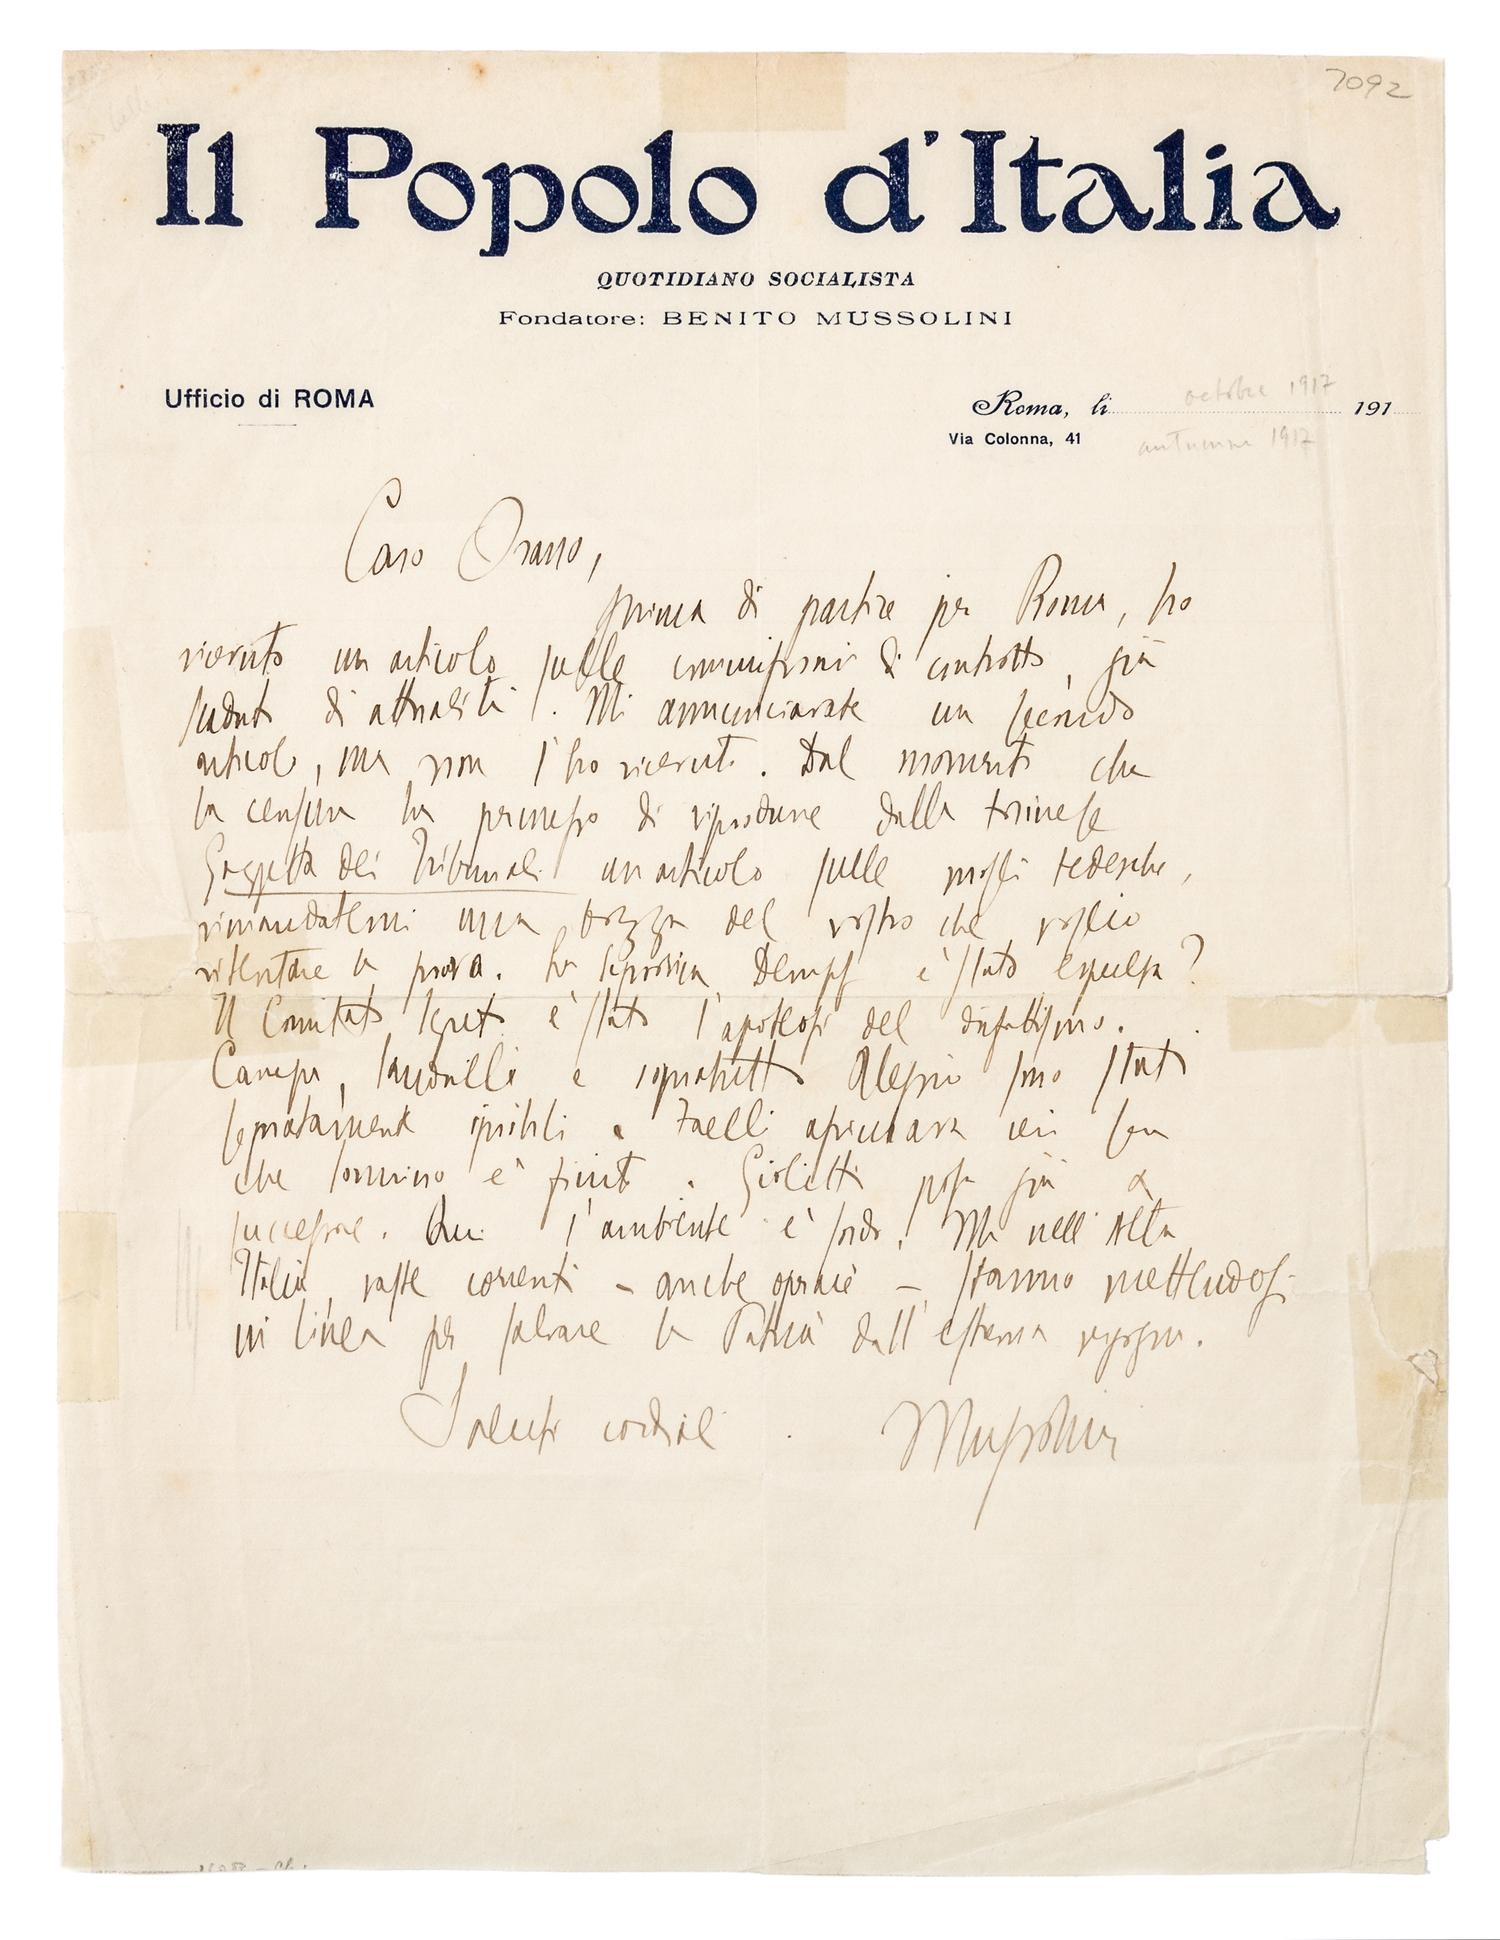 7092
Il Popolo d'Italia
QUOTIDIANO SOCIALISTA
Fondatore: BENITO MUSSOLINI
Ufficio di ROMA
octobre 1917
Roma, li 191
Via Colonna, 41
automne 1917
Caro Orano,
prima di partire per Roma, ho
ricevuto un articolo sulle commissioni di contratto, già
scaduto di attualità. Mi annunciavate un secondo
articolo, ma non l'ho ricevuto. Dal momento che
la censura ha permesso di riprodurre dalla torinese
Gazzetta dei Tribunali un articolo sulle mogli tedesche,
rimandatemi una bozza del vostro che voglio
ritentare la prova. La signorina è stata espulsa?
Il Comitato segreto è stato l'apoteosi del disfattismo.
Canepa, e soprattutto sono stati
ignobili. affermava ieri sera
che Sonnino è finito. Giolitti posa già a
successore. Qui l'ambiente è sordo. Ma nell'Alta
Italia, vaste correnti - anche operaie - stanno mettendosi
in linea per salvare la Patria dall'estrema vergogna.
Saluti cordiali. Mussolini